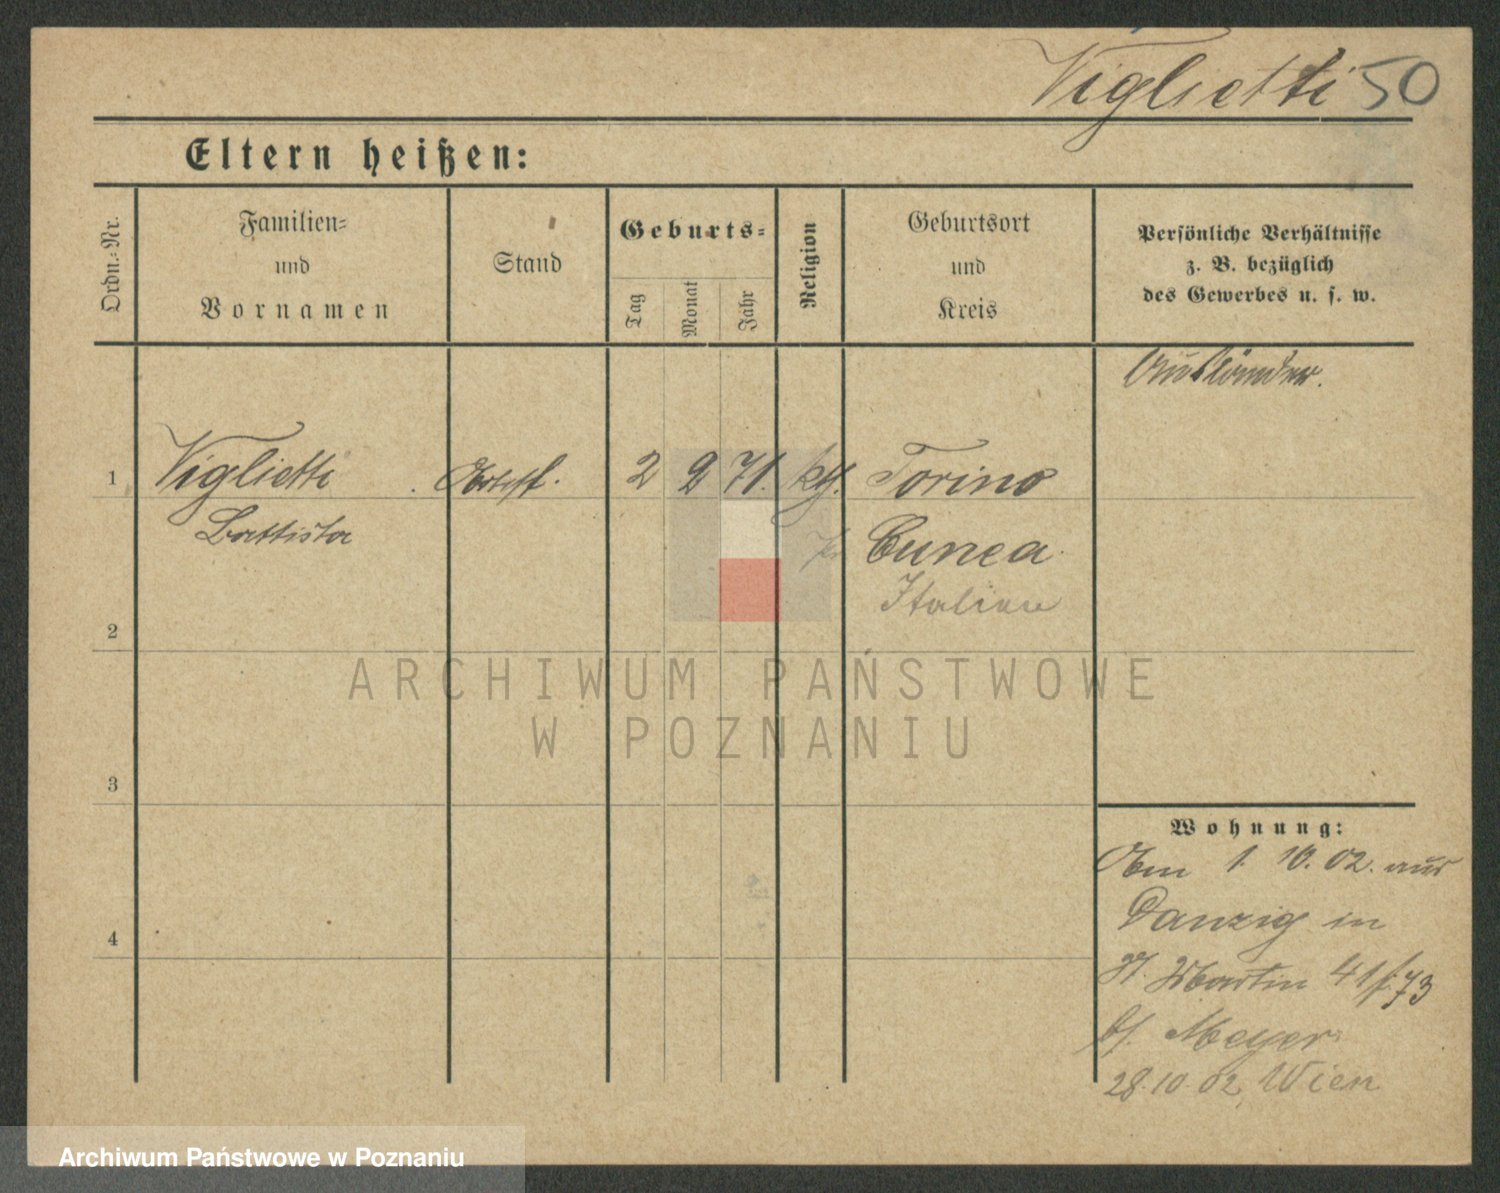 Viglietti 50
Eltern heißen:
Ordn.-Nr.
Familien-
und
Vornamen
Stand
Geburts-
Tag
Monat
Jahr
Religion
Geburtsort
und
Kreis
Persönliche Verhältnisse
z. B. bezüglich
des Gewerbes u. s. w.
Ausländer.
1 Viglietti 2 2 71. kth. Torino
Battista
Cunea
Italien
2
3
4
ARCHIWUM PAŃSTWOWE
W POZNANIU
Wohnung:
1. 10. 02. aus
Danzig in
St. Martin 41/73
b/. Meyer
28.10 02, Wien
Archiwum Państwowe w Poznaniu